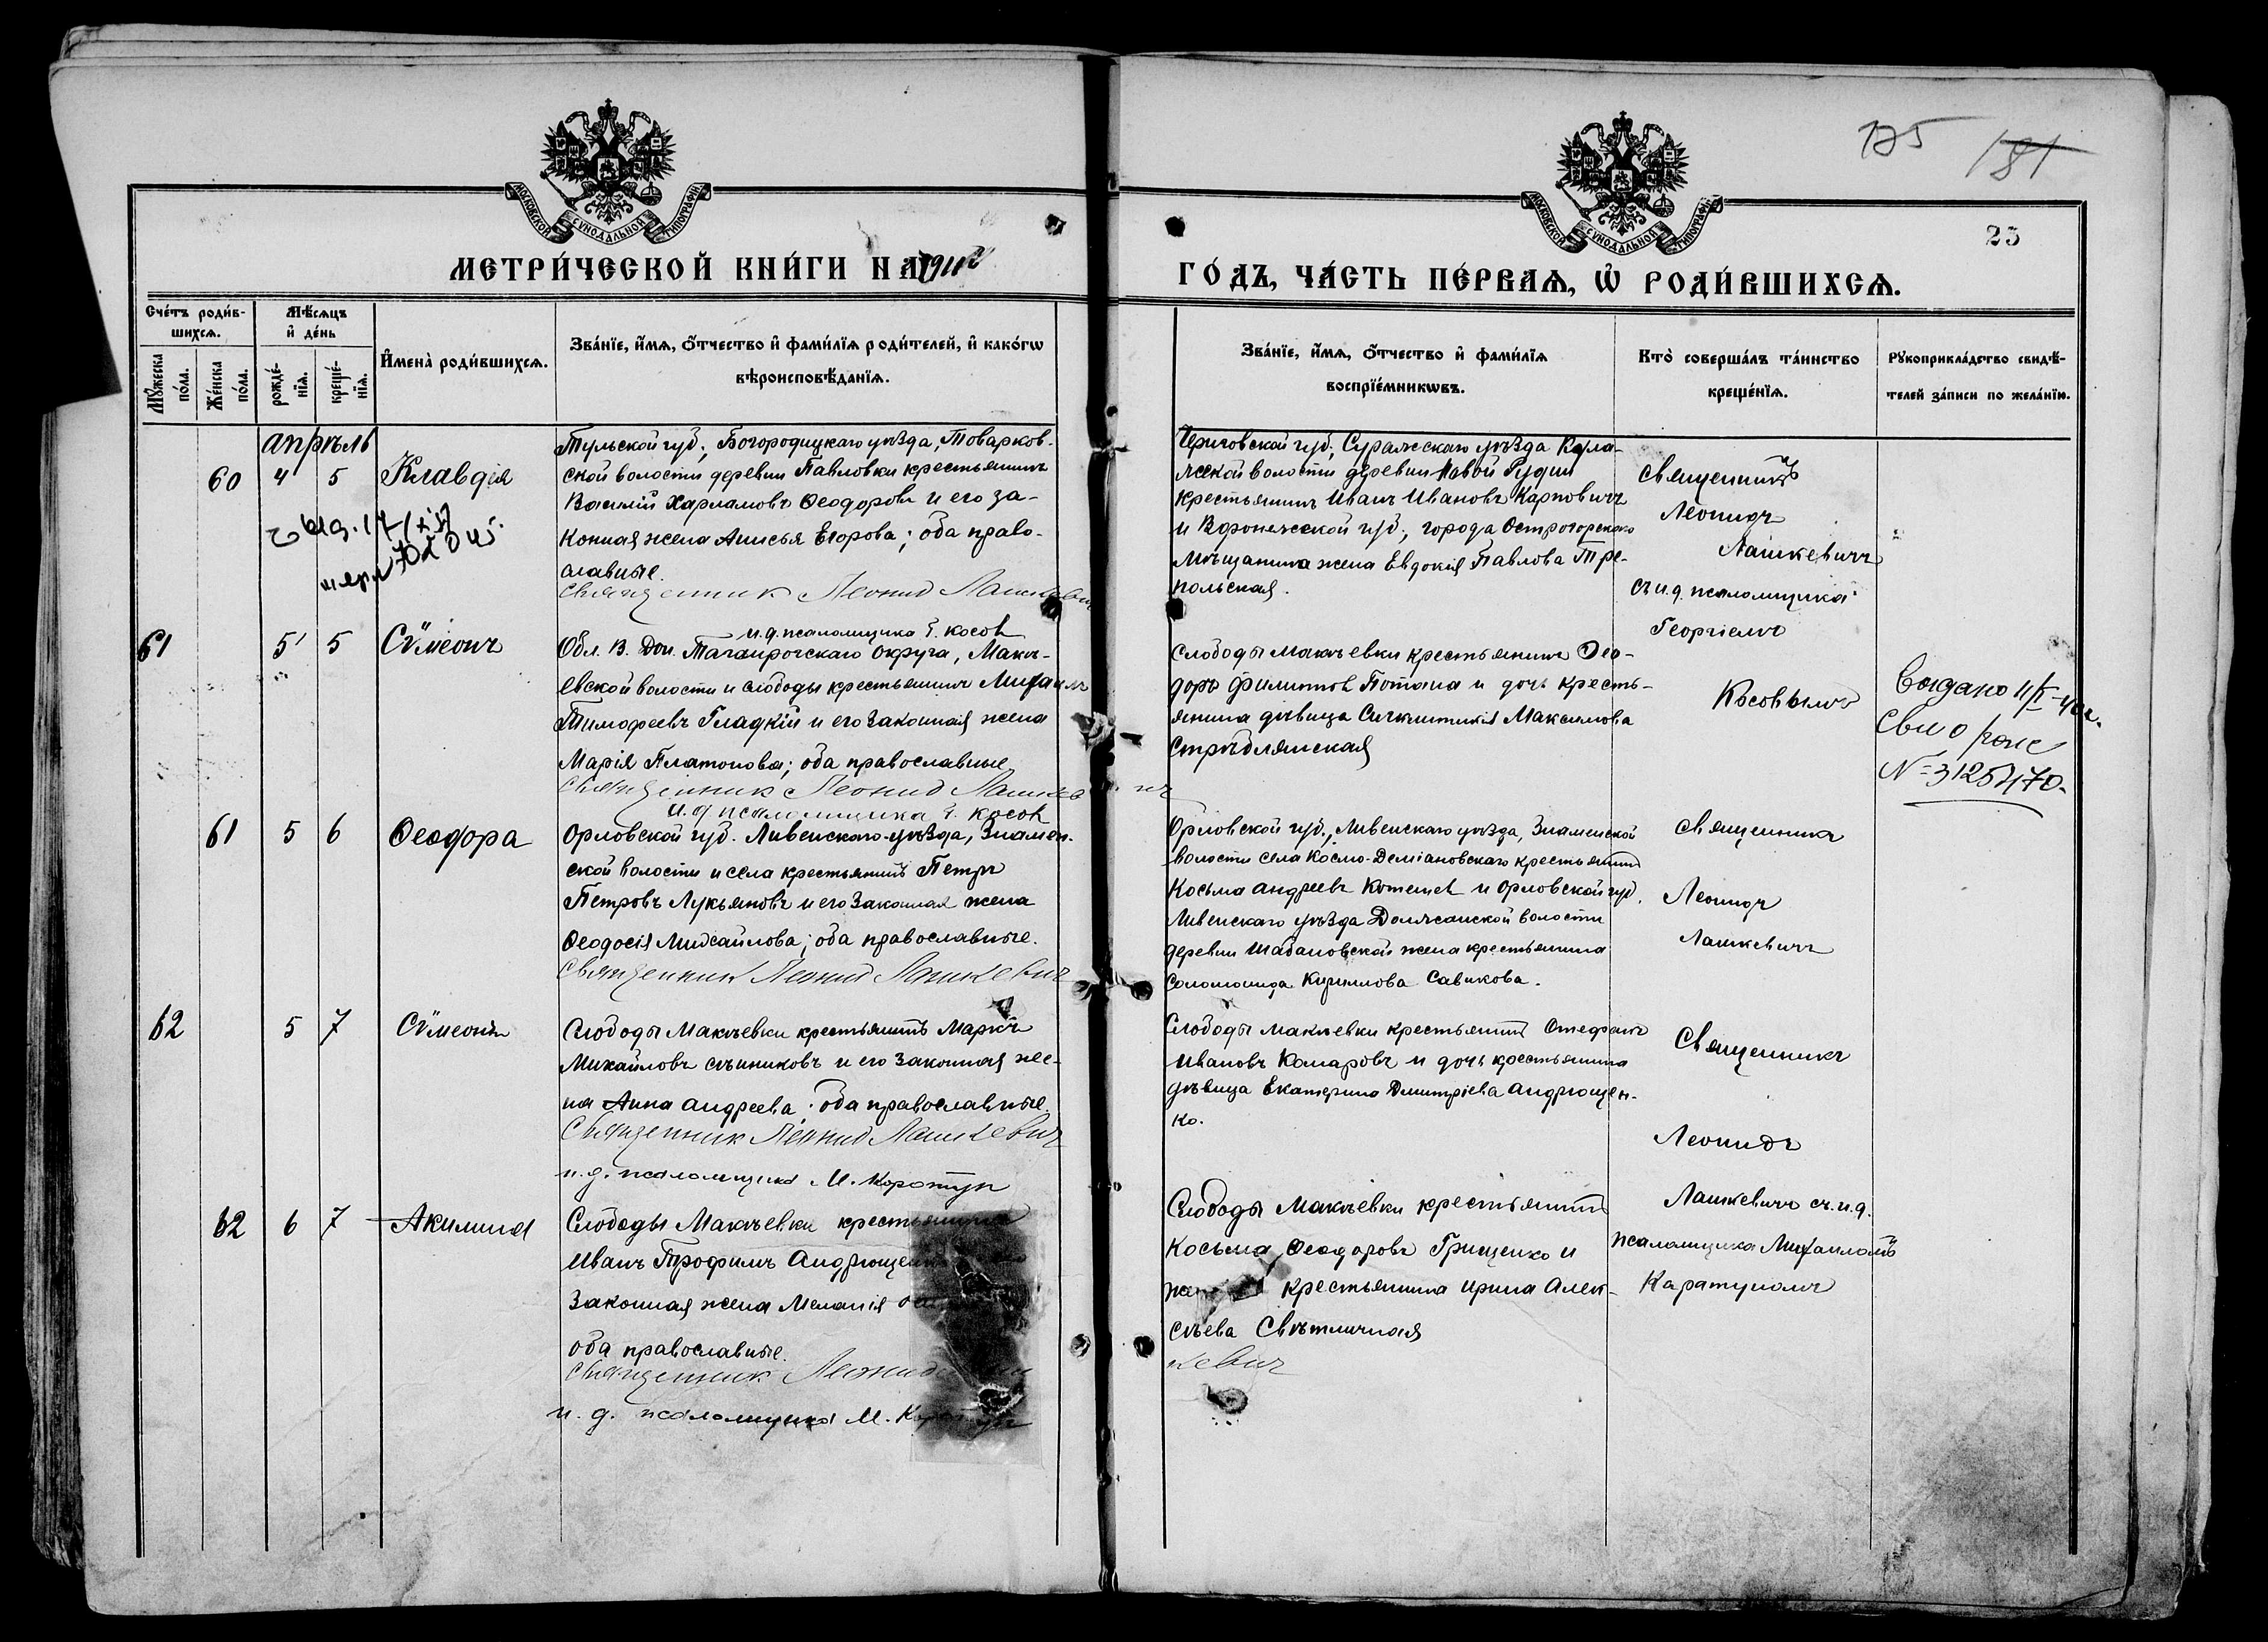 175 181
МОСКОВСКОЙ СУНОДАЛЬНОЙ ТИПОГРАФІИ
МОСКОВСКОЙ СУНОДАЛЬНОЙ ТИПОГРАФІИ
23
МЕТРИ́ЧЕСКОЙ КНИ́ГИ НА 1911й
ГО́ДЪ, ЧА́СТЬ ПЕ́РВАѦ, Ѡ РОДИ́ВШИХСѦ.
Сче́тъ роди́в-
шихсѧ.
Мꙋ́жеска по́ла.
Же́нска по́ла.
Мѣ́сѧцъ
и҆ де́нь
рожде́-
нїѧ.
креще́-
нїѧ.
И҆мена̀ роди́вшихсѧ.
Зва́нїе, и҆́мѧ, ѻ҆́тчество и҆ фами́лїѧ роди́телей, и҆ како́гѡ
вѣроисповѣ́данїѧ.
Зва́нїе, и҆́мѧ, ѻ҆́тчество и҆ фами́лїѧ
воспрїе́мникѡвъ.
Кто̀ соверша́лъ та́инство
креще́нїѧ.
Рꙋкоприкла́дство свидѣ́-
телей за́писи по жела́нїю.
апрѣль
60 4 5 Клавдія
Тульской губ., Богородицкаго уѣзда, Товарков-
ской волости деревни Павловки крестьянинъ
Василій Харламовъ Ѳеодоровъ и его за-
конная жена Анисья Егорова; оба право-
славные.
Священник Леонид Лашкевич
и.д. псаломщика Г. Косов
Черниговской губ., Суражскаго уѣзда
волости деревни Новой Рудни
крестьянинъ Иванъ Ивановъ Карповичъ
и Воронежской губ., города Острогорскаго
мѣщанина жена Евдокія Павлова Тре-
польская.
Священникъ
Леонидъ
Лашкевичъ
съ и.д. псаломщика
Георгіемъ
Косовымъ
61 5 5 Сѵмеонъ
Обл. В. Дон. Таганрогскаго округа, Макѣ-
евской волости и слободы крестьянинъ Михаилъ
Тимофеевъ Гладкій и его законная жена
Марія Платонова; оба православные
Священник Леонид Лашкевич
и.д. псаломщика Г. Косов
Слободы Макѣевки крестьянинъ Ѳео-
доръ Филиппов Потапа и дочь кресть-
янина дѣвица Максимова
Стрѣблянская
Выдано
Св. о рожд
N=3125470.
61 5 6 Ѳеодора
Орловской губ. Ливенскаго уѣзда, Знамен-
ской волости и села крестьянинъ Петръ
Петровъ Лукьяновъ и его законная жена
Ѳеодосія Михайлова; оба православные.
Священник Леонид Лашкевич
Орловской губ., Ливенскаго уѣзда, Знаменской
волости села Космо-Деміановскаго крестьянинъ
Косьма Андреевъ и Орловской губ.
Ливенскаго уѣзда Должанской волости
деревни Шабановской жена крестьянина
Соломонида Кириллова Савикова.
Священникъ
Леонидъ
Лашкевичъ
62 5 7 Сѵмеонъ
Слободы Макѣевки крестьянинъ Маркъ
Михайловъ Сѣнниковъ и его законная же-
на Анна Андреева; оба православные.
Священник Леонид Лашкевич
и.д. псаломщика М. Коротун
Слободы Макѣевки крестьянинъ Стефанъ
Ивановъ Комаровъ и дочь крестьянина
дѣвица Екатерина Дмитріева Андрющен-
ко.
Священникъ
Леонидъ
Лашкевичъ съ и.д.
псаломщика Михаиломъ
Каратуномъ
62 6 7 Акилина
Слободы Макѣевки крестьянинъ
Иванъ Трофимъ Андрющен
законная жена Меланія
оба православные.
Священник Леонид
и. д. псаломщика М. Коротун
Слободы Макѣевки крестьянинъ
Косьма Ѳеодоровъ Грищенко и
жена крестьянина Ирина Алек-
сѣева Свѣтличная
кевич